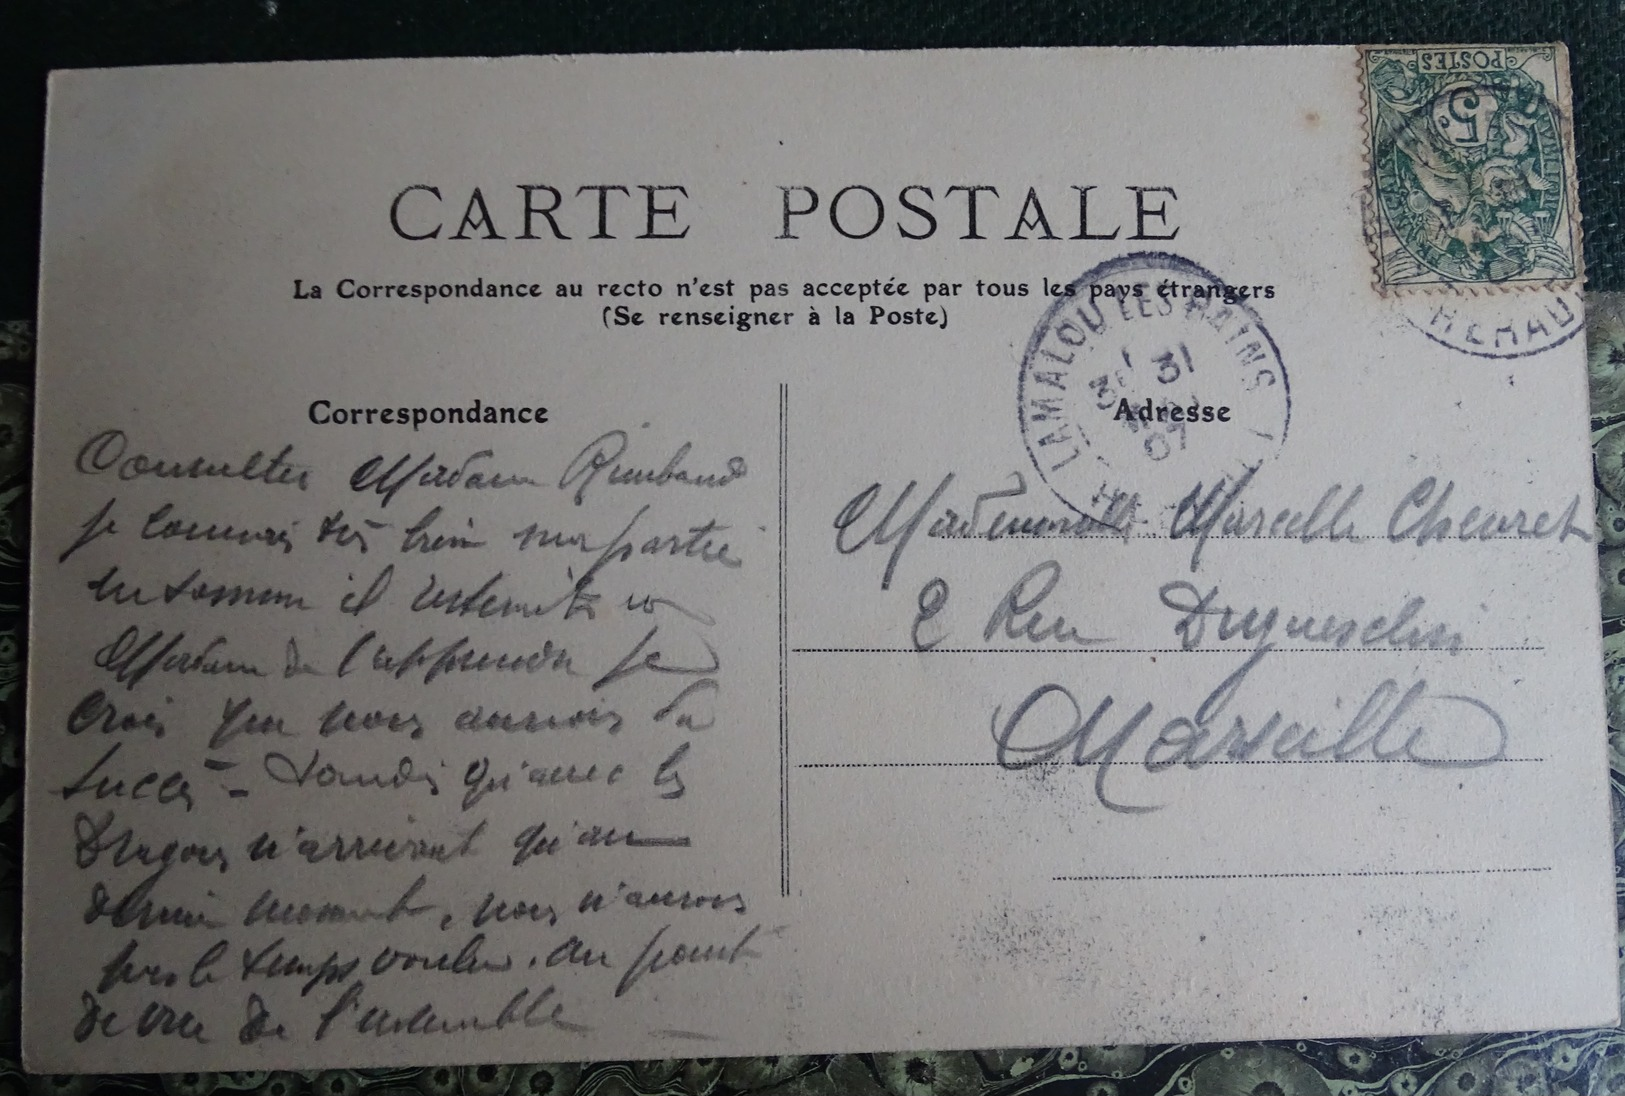 POSTES
5c
CARTE POSTALE
La Correspondance au recto n'est pas acceptée par tous les pays étrangers
(Se renseigner à la Poste)
LAMALOU LES BAINS
31
07
HERAU
Correspondance
Consultez Madame Rimbaud
je connais très bien ma partie
en somme il resterait
Madame de l'apprendre je
crois que nous aurions du
succès - Tandis qu'avec les
Dragons n'arrivant qu'au
dernier moment, nous n'aurons
pas le temps voulu. au point
de vue de l'ensemble
Adresse
Mademoiselle Marcelle Chevret
2 Rue Duguesclin
Marseille